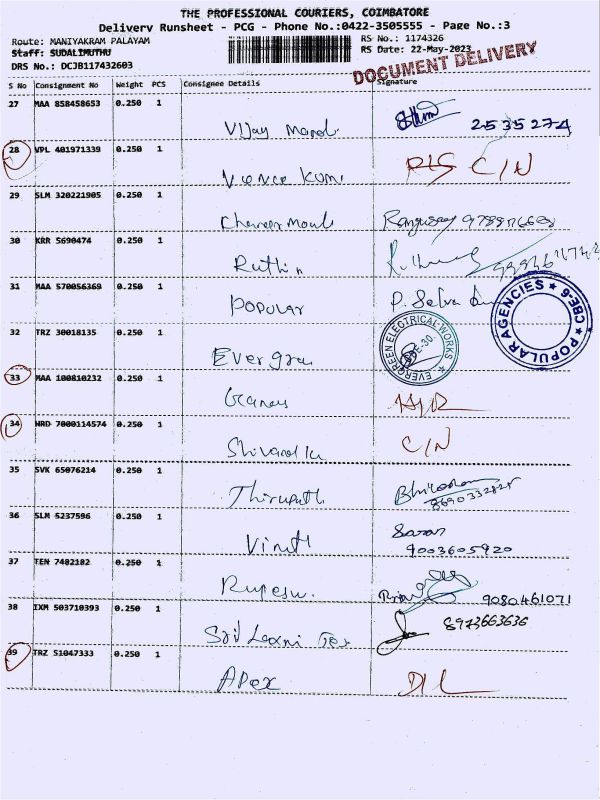 THE PROFESSIONAL COURIERS, COIMBATORE
Delivery Runsheet - PCG - Phone No.:0422-3505555 - Page No.:3
Route: MANIYAKRAM PALAYAM
RS No.: 1174326
Staff: SUDALIMUTHU
RS Date: 22-May-2023
DRS No.: DCJB117432603
DOCUMENT DELIVERY
S No Consignment No Weight PCS Consignee Details Signature
27 MAA 858458653 0.250 1 Vijay 2535274
28 VPL 401971339 0.250 1 C/N
29 SLM 320221905 0.250 1
30 KRR 5690474 0.250 1 Ruthin
31 MAA 570056369 0.250 1 POPULAR P. Selva
POPULAR AGENCIES CBE-6
32 TRZ 30018135 0.250 1 Evergreen
EVERGREEN ELECTRICAL WORKS
33 MAA 100810232 0.250 1
34 HRD 7000114574 0.250 1 C/N
35 SVK 65076214 0.250 1 Thirupath
36 SLM 5237596 0.250 1 Saran
9003605920
37 TEN 7482182 0.250 1 9080461071
38 IXM 503710393 0.250 1 Sri Laxmi Tex 8973663636
39 TRZ 51047333 0.250 1 APex D/L